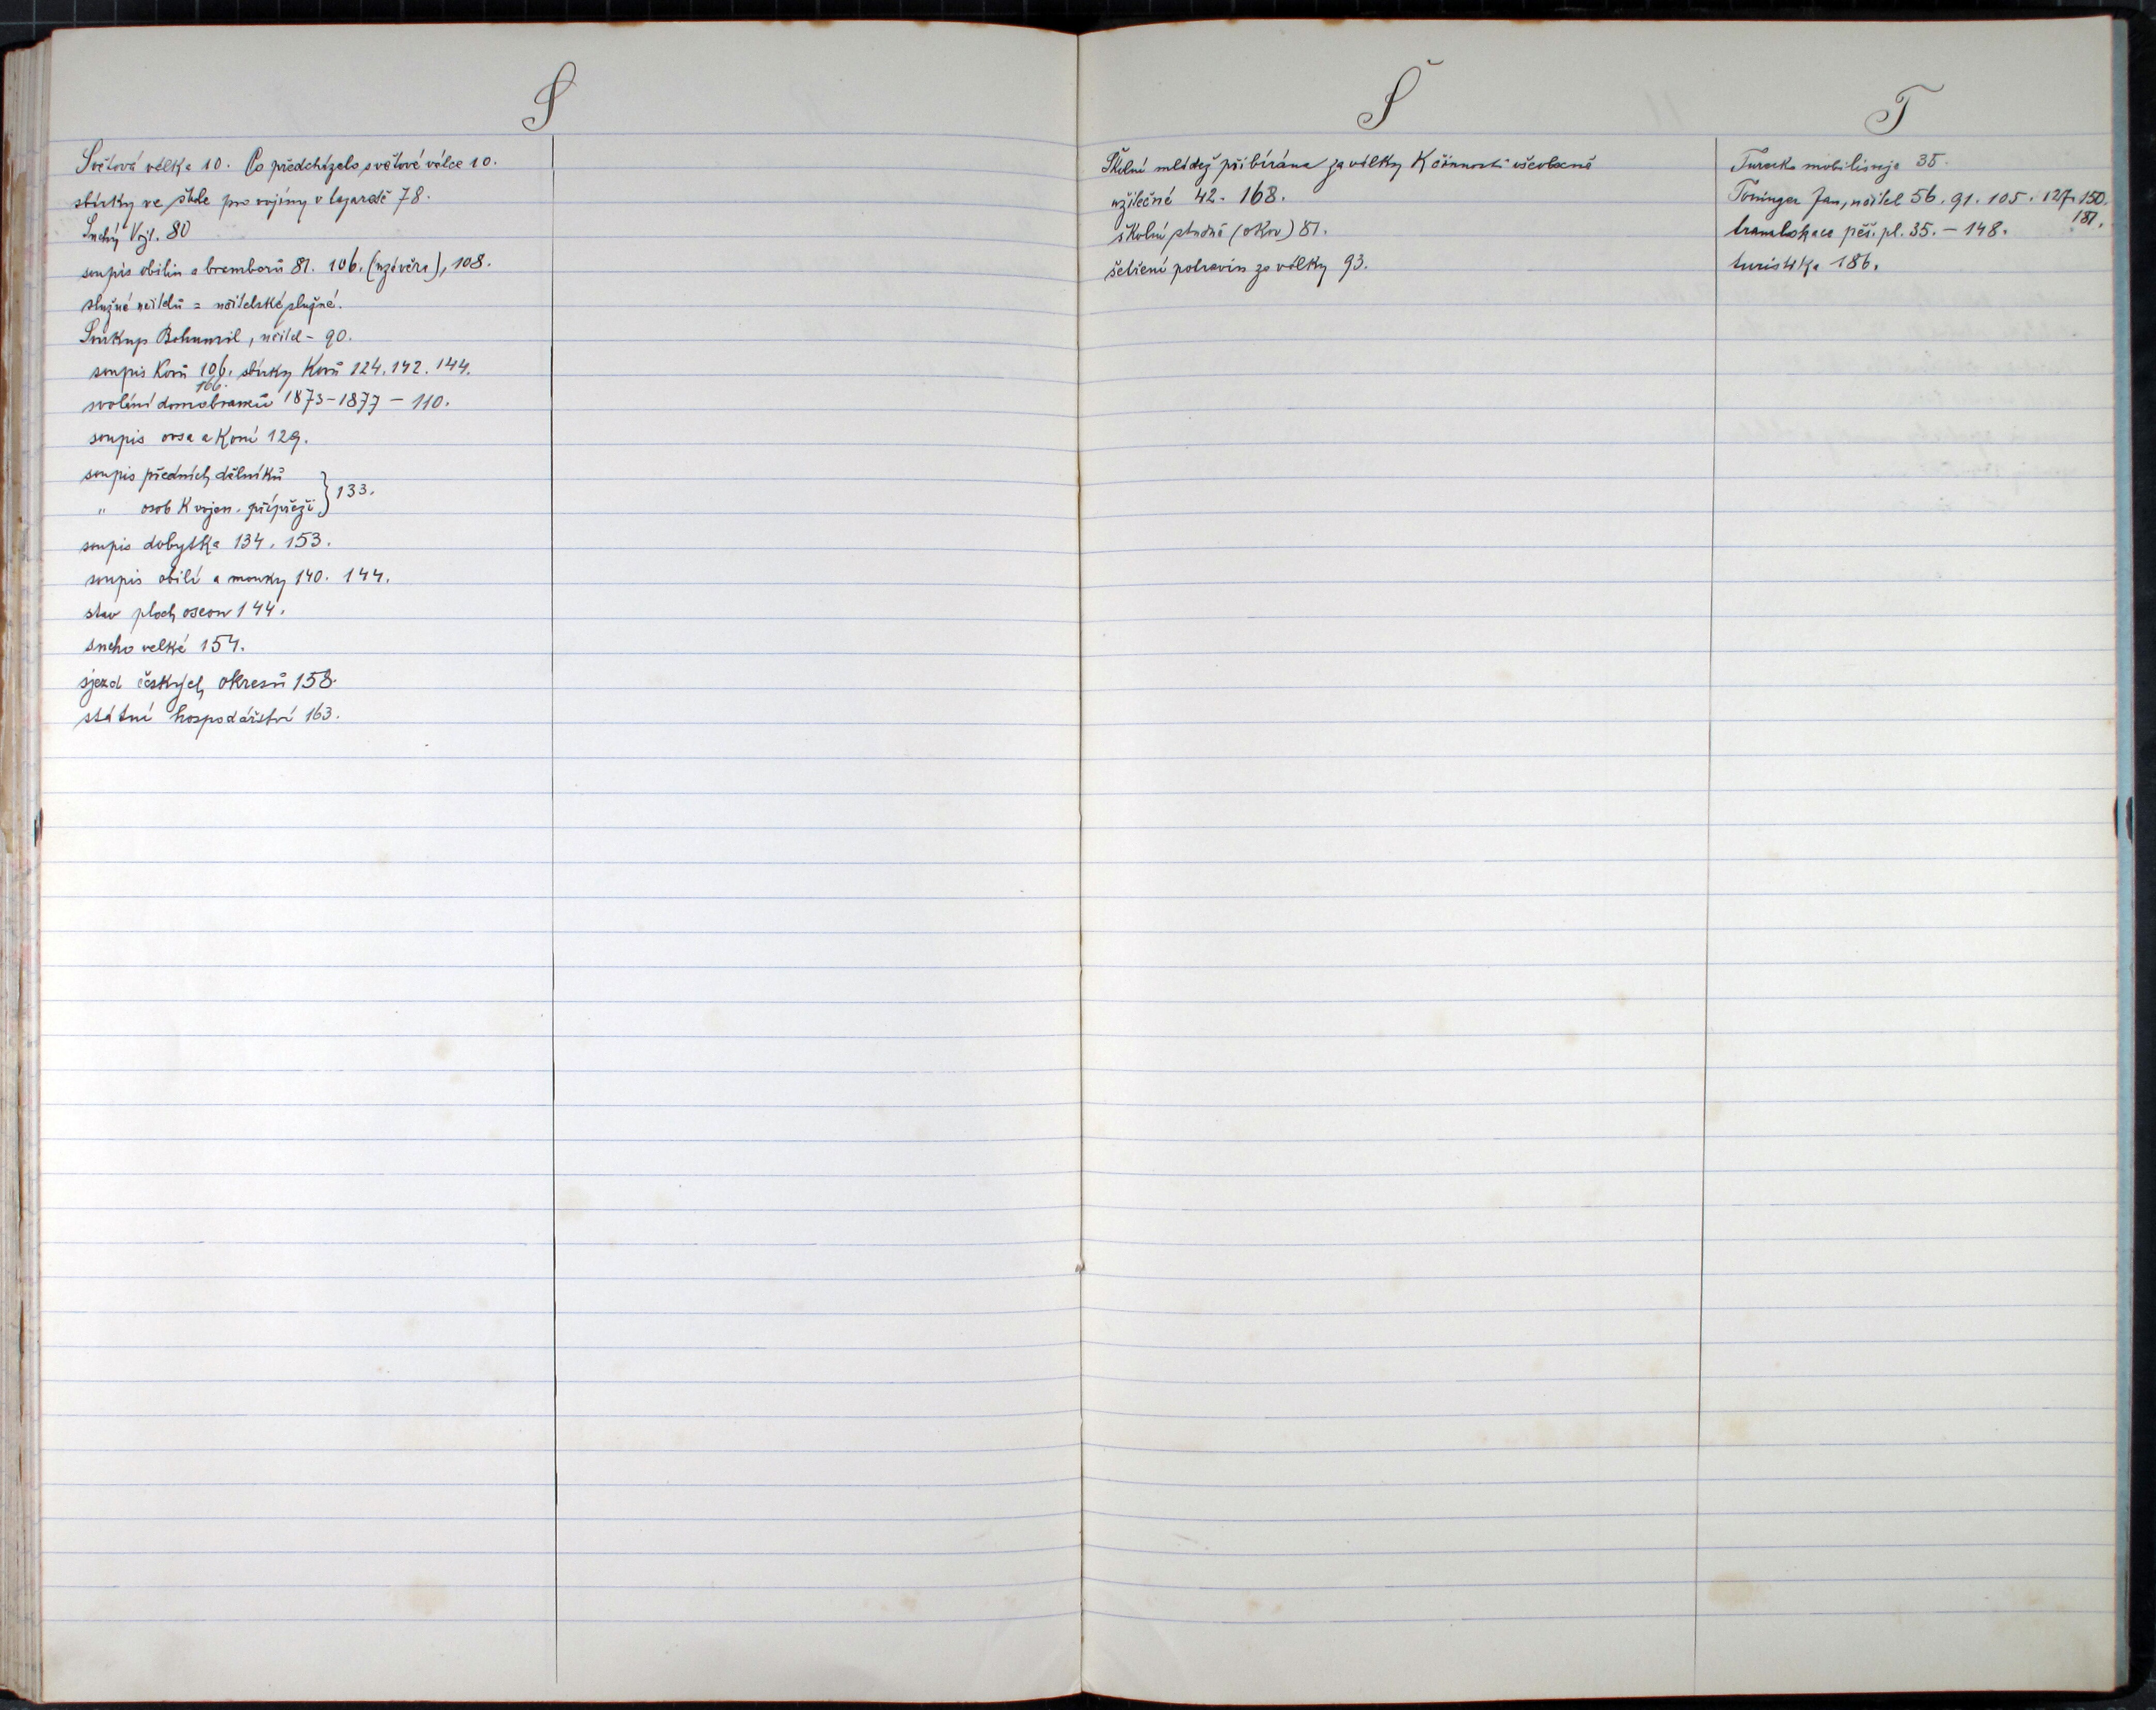 S
Světová válka 10. Co předcházelo světové válce 10.
sbírky ve škole pro vojíny v lazaretě 78.
Suchý Vojt. 80
soupis obilin a bramborů 81. 106. (uzávěra), 108.
služné učitelů = učitelské služné.
Soukup Bohumil, učitel - 90.
soupis kovů 106. sbírky kovů 124. 142. 144.
166.
svolání domobranců 1873-1877 - 110.
soupis ovsa a koní 129.
soupis předních dělníků
" osob k vojen. přípřeži } 133.
soupis dobytka 134. 153.
soupis obilí a mouky 140. 144.
stav ploch osevn 144.
sucho velké 154.
sjezd českých okresů 158.
státní hospodářství 163.
Š
Školní mládež přibírána za války k činnosti všeobecně
užitečné 42. 168.
školní studně (okov) 81.
šetření potravin za války 93.
T
Turecko mobilisuje 35.
Toninger Jan, učitel 56. 91. 105. 127. 150.
181.
translokace pěš. pl. 35. - 148.
turistika 186.